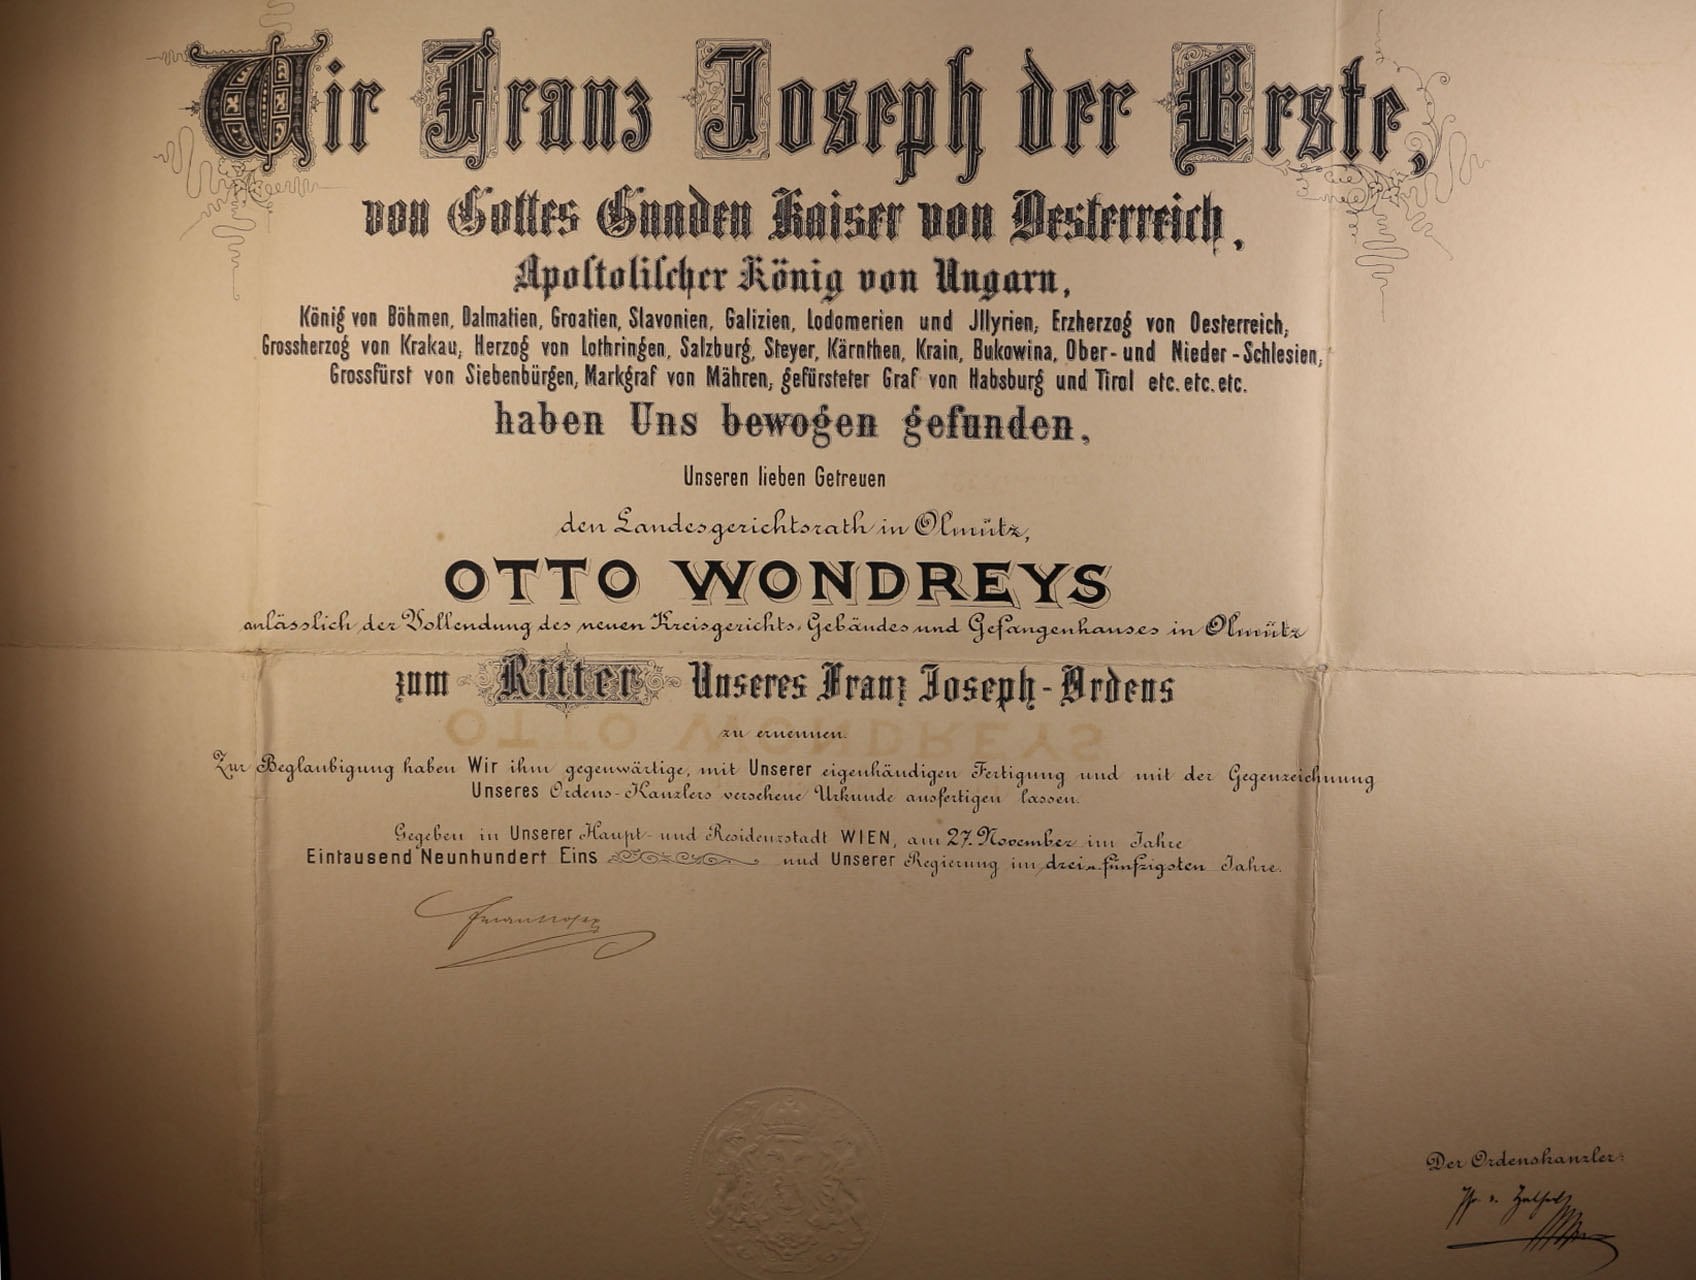 Wir Franz Joseph der Erste,
von Gottes Gnaden Kaiser von Oesterreich,
Apostolischer König von Ungarn,
König von Böhmen, Dalmatien, Croatien, Slavonien, Galizien, Lodomerien und Jllyrien, Erzherzog von Oesterreich,
Grossherzog von Krakau, Herzog von Lothringen, Salzburg, Steyer, Kärnthen, Krain, Bukowina, Ober- und Nieder-Schlesien,
Grossfürst von Siebenbürgen, Markgraf von Mähren, gefürsteter Graf von Habsburg und Tirol etc. etc. etc.
haben Uns bewogen gefunden,
Unseren lieben Getreuen
den Landesgerichtsrath in Olmütz,
OTTO WONDREYS
anlässlich der Vollendung des neuen Kreisgerichts-Gebäudes und Gefangenhauses in Olmütz
zum Ritter Unseres Franz Joseph-Ordens
zu ernennen.
Zur Beglaubigung haben Wir ihm gegenwärtige, mit Unserer eigenhändigen Fertigung und mit der Gegenzeichnung
Unseres Ordens-Kanzlers versehene Urkunde ausfertigen lassen.
Gegeben in Unserer Haupt- und Residenzstadt WIEN, am 27. November im Jahre
Eintausend Neunhundert Eins und Unserer Regierung im drei u. fünfzigsten Jahre.
Der Ordenskanzler: